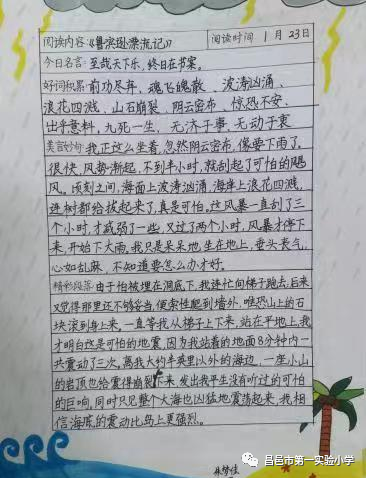 阅读内容:《鲁滨逊漂流记》 阅读时间 1月23日
今日名言:至哉天下乐,终日在书案。
好词积累:前功尽弃、魂飞魄散、波涛汹涌、
浪花四溅、山石崩裂、阴云密布、惊恐不安、
出乎意料、九死一生、无济于事、无动于衷
美言妙句:我正这么坐着,忽然阴云密布,像要下雨了。
很快,风势渐起,不到半小时,就刮起了可怕的飓
风。顷刻之间,海面上波涛汹涌,海岸上浪花四溅,
连树都给拔起来了,真是可怕。这风暴一直刮了三
个小时,才减弱了一些,又过了两个小时,风暴才停下
来,开始下大雨。我只是呆呆地坐在地上,垂头丧气,
心如乱麻,不知道要怎么办才好。
精彩段落:由于怕被埋在洞底下,我连忙向梯子跑去;后来
又觉得那里还不够妥当,便索性爬到墙外,唯恐山上的石
块滚到身上来。一直等我从梯子上下来,站在平地上,我
才明白这是可怕的地震,因为我站着的地面8分钟内一
共震动了三次。离我大约半英里以外的海边,一座小山
的岩顶也给震得崩裂下来,发出我平生没有听过的可怕
的巨响,同时只见整个大海也凶猛地震荡起来,我相
信海底的震动比岛上更强烈。
昌邑市第一实验小学